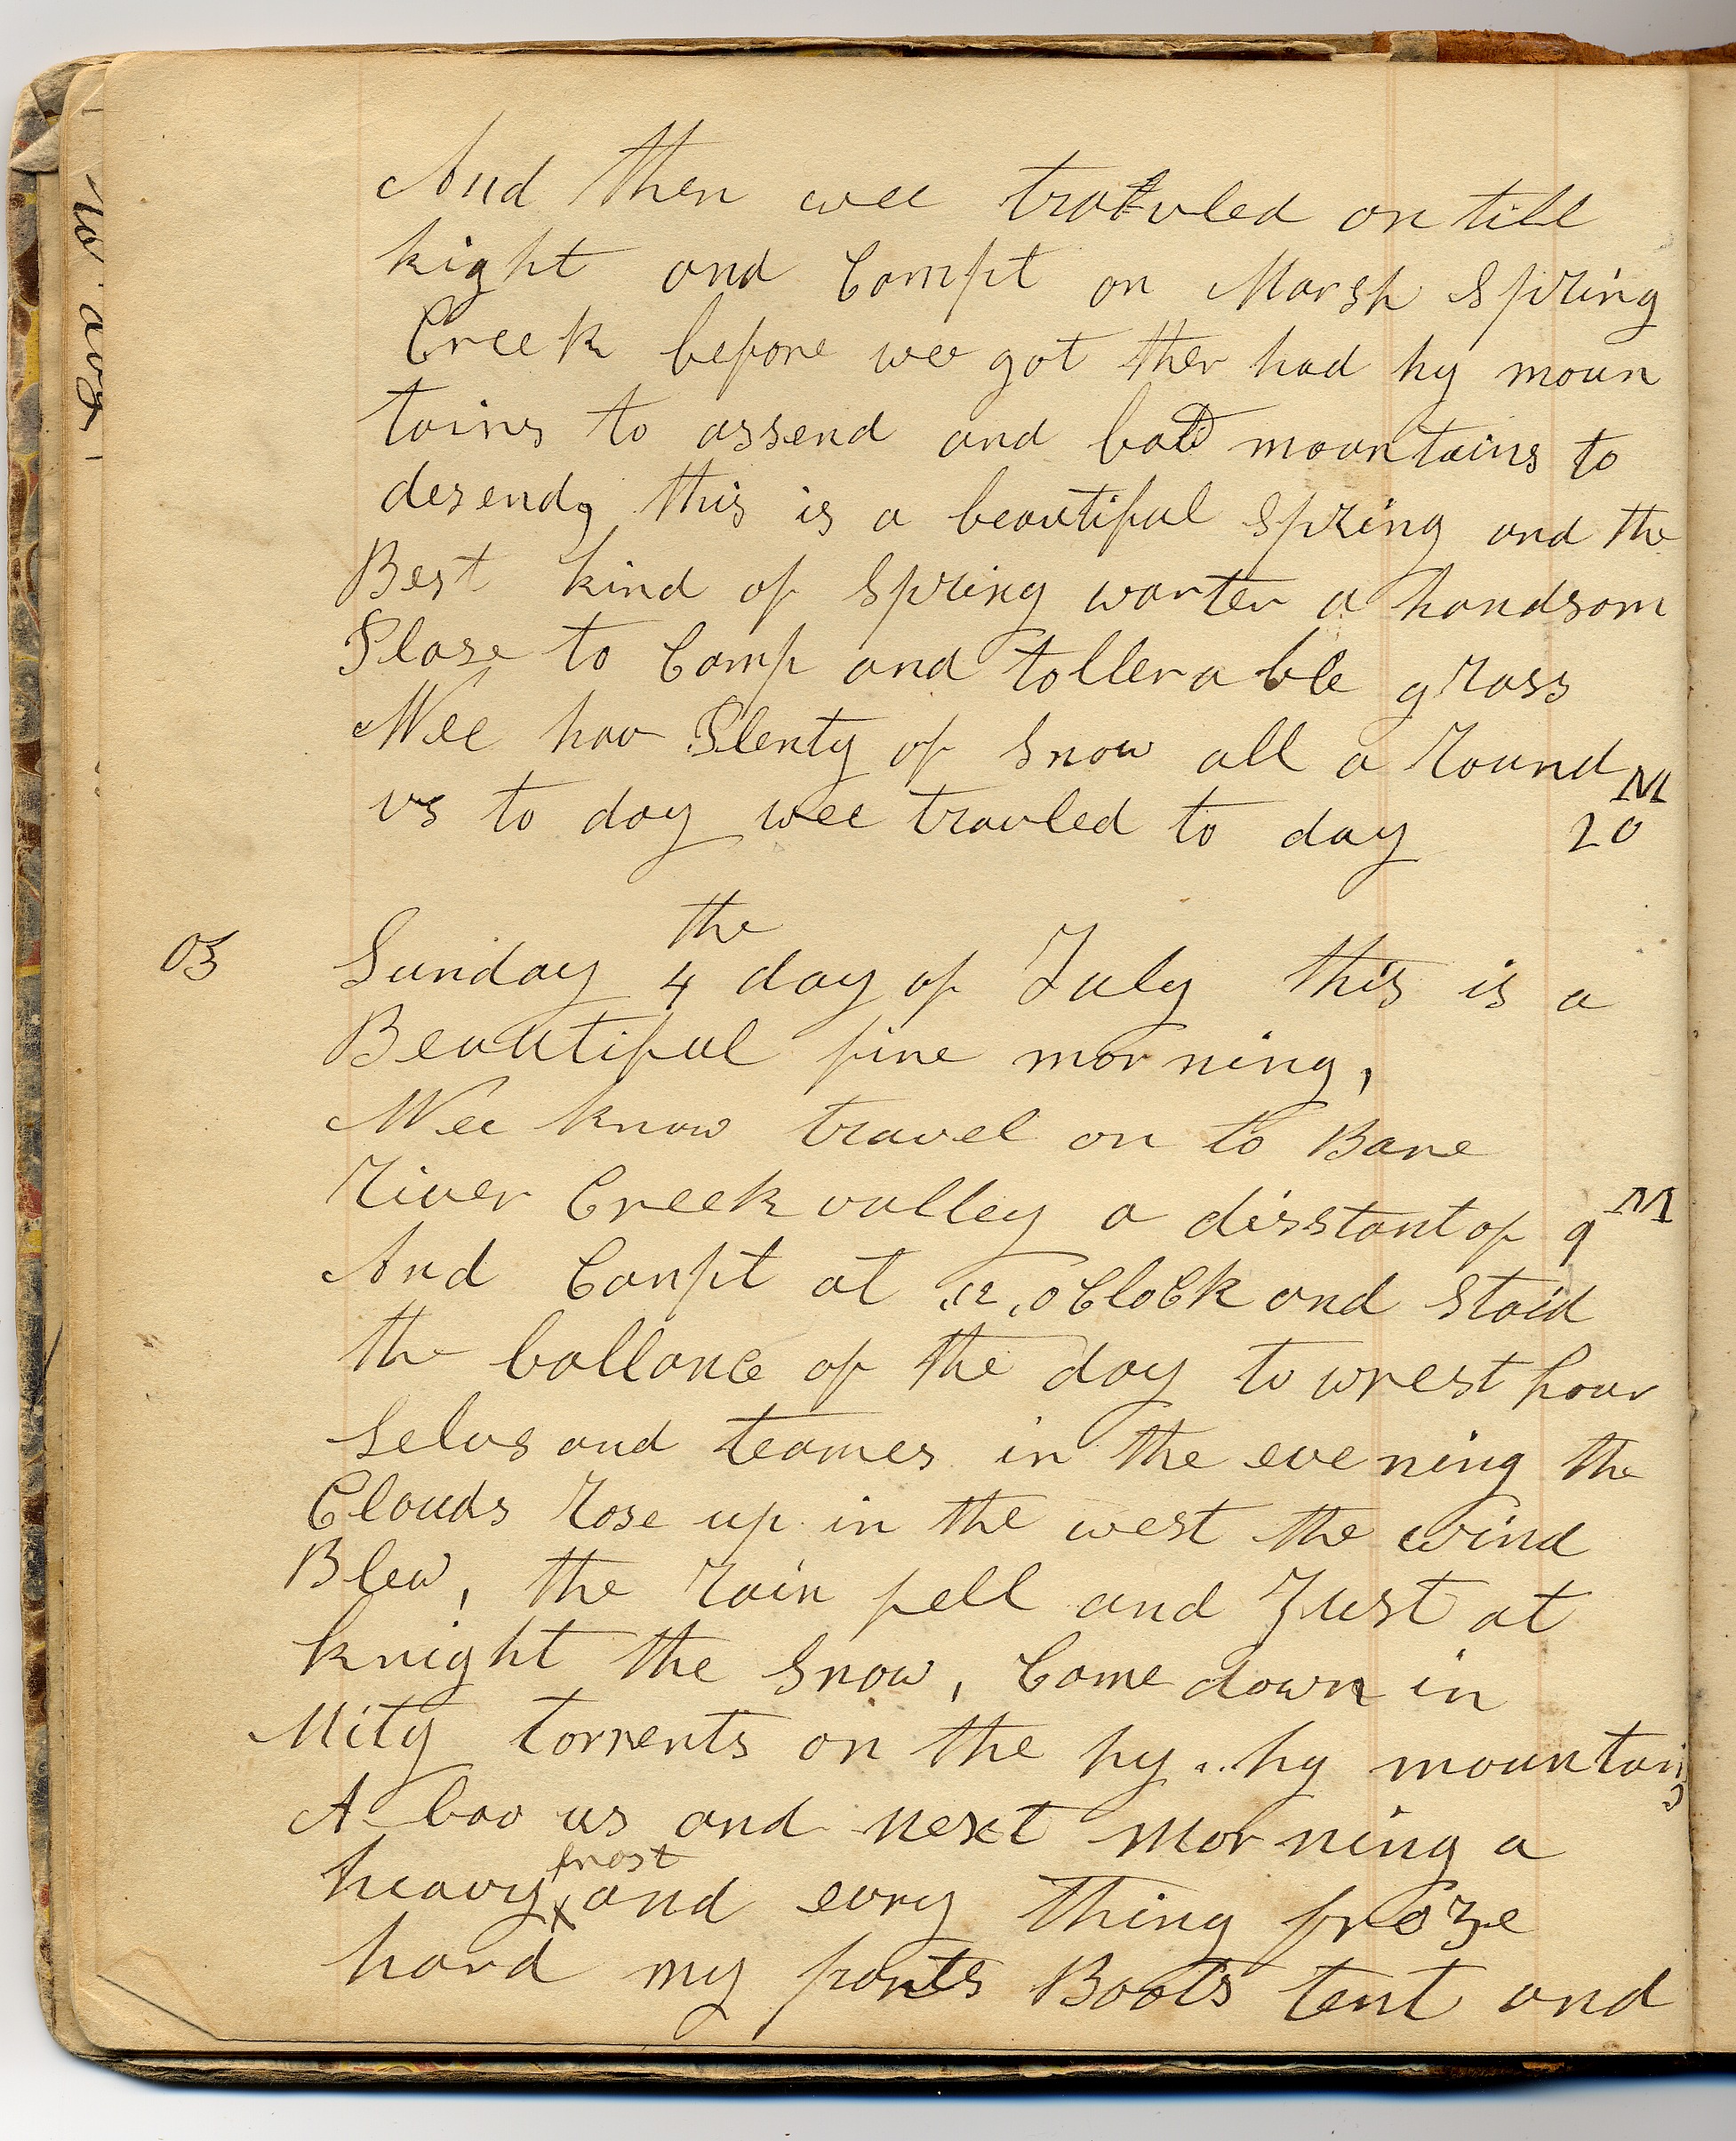 And then wee travuled on till
kight and Compt on Marsh Spring
Creek before wee got ther had hy moun
tains to assend and bad mountains to
desend, this is a beautiful Spring and the
Best kind of Spring warter a handsom
Plase to Camp and tollerable grass
Wee hav Plenty of Snow all a round
us to day wee travled to day 20 M
03 Sunday 4 the day of July this is a
Beautiful fine morning,
Wee know travel on to Bare
River Creek valley a disstant of 9 M
And Campt at .12. oCloCk and staid
the ballance of the day to wrest hour
selvs and teames in the evening the
Clouds rose up in the west the wind
Blew, the rain fell and Just at
knight the Snow, Came down in
Mity torrents on the hy .. hy mountains
A bov us and next morning a
heavy frost and evry thing froze
hard my pants Boots tent and